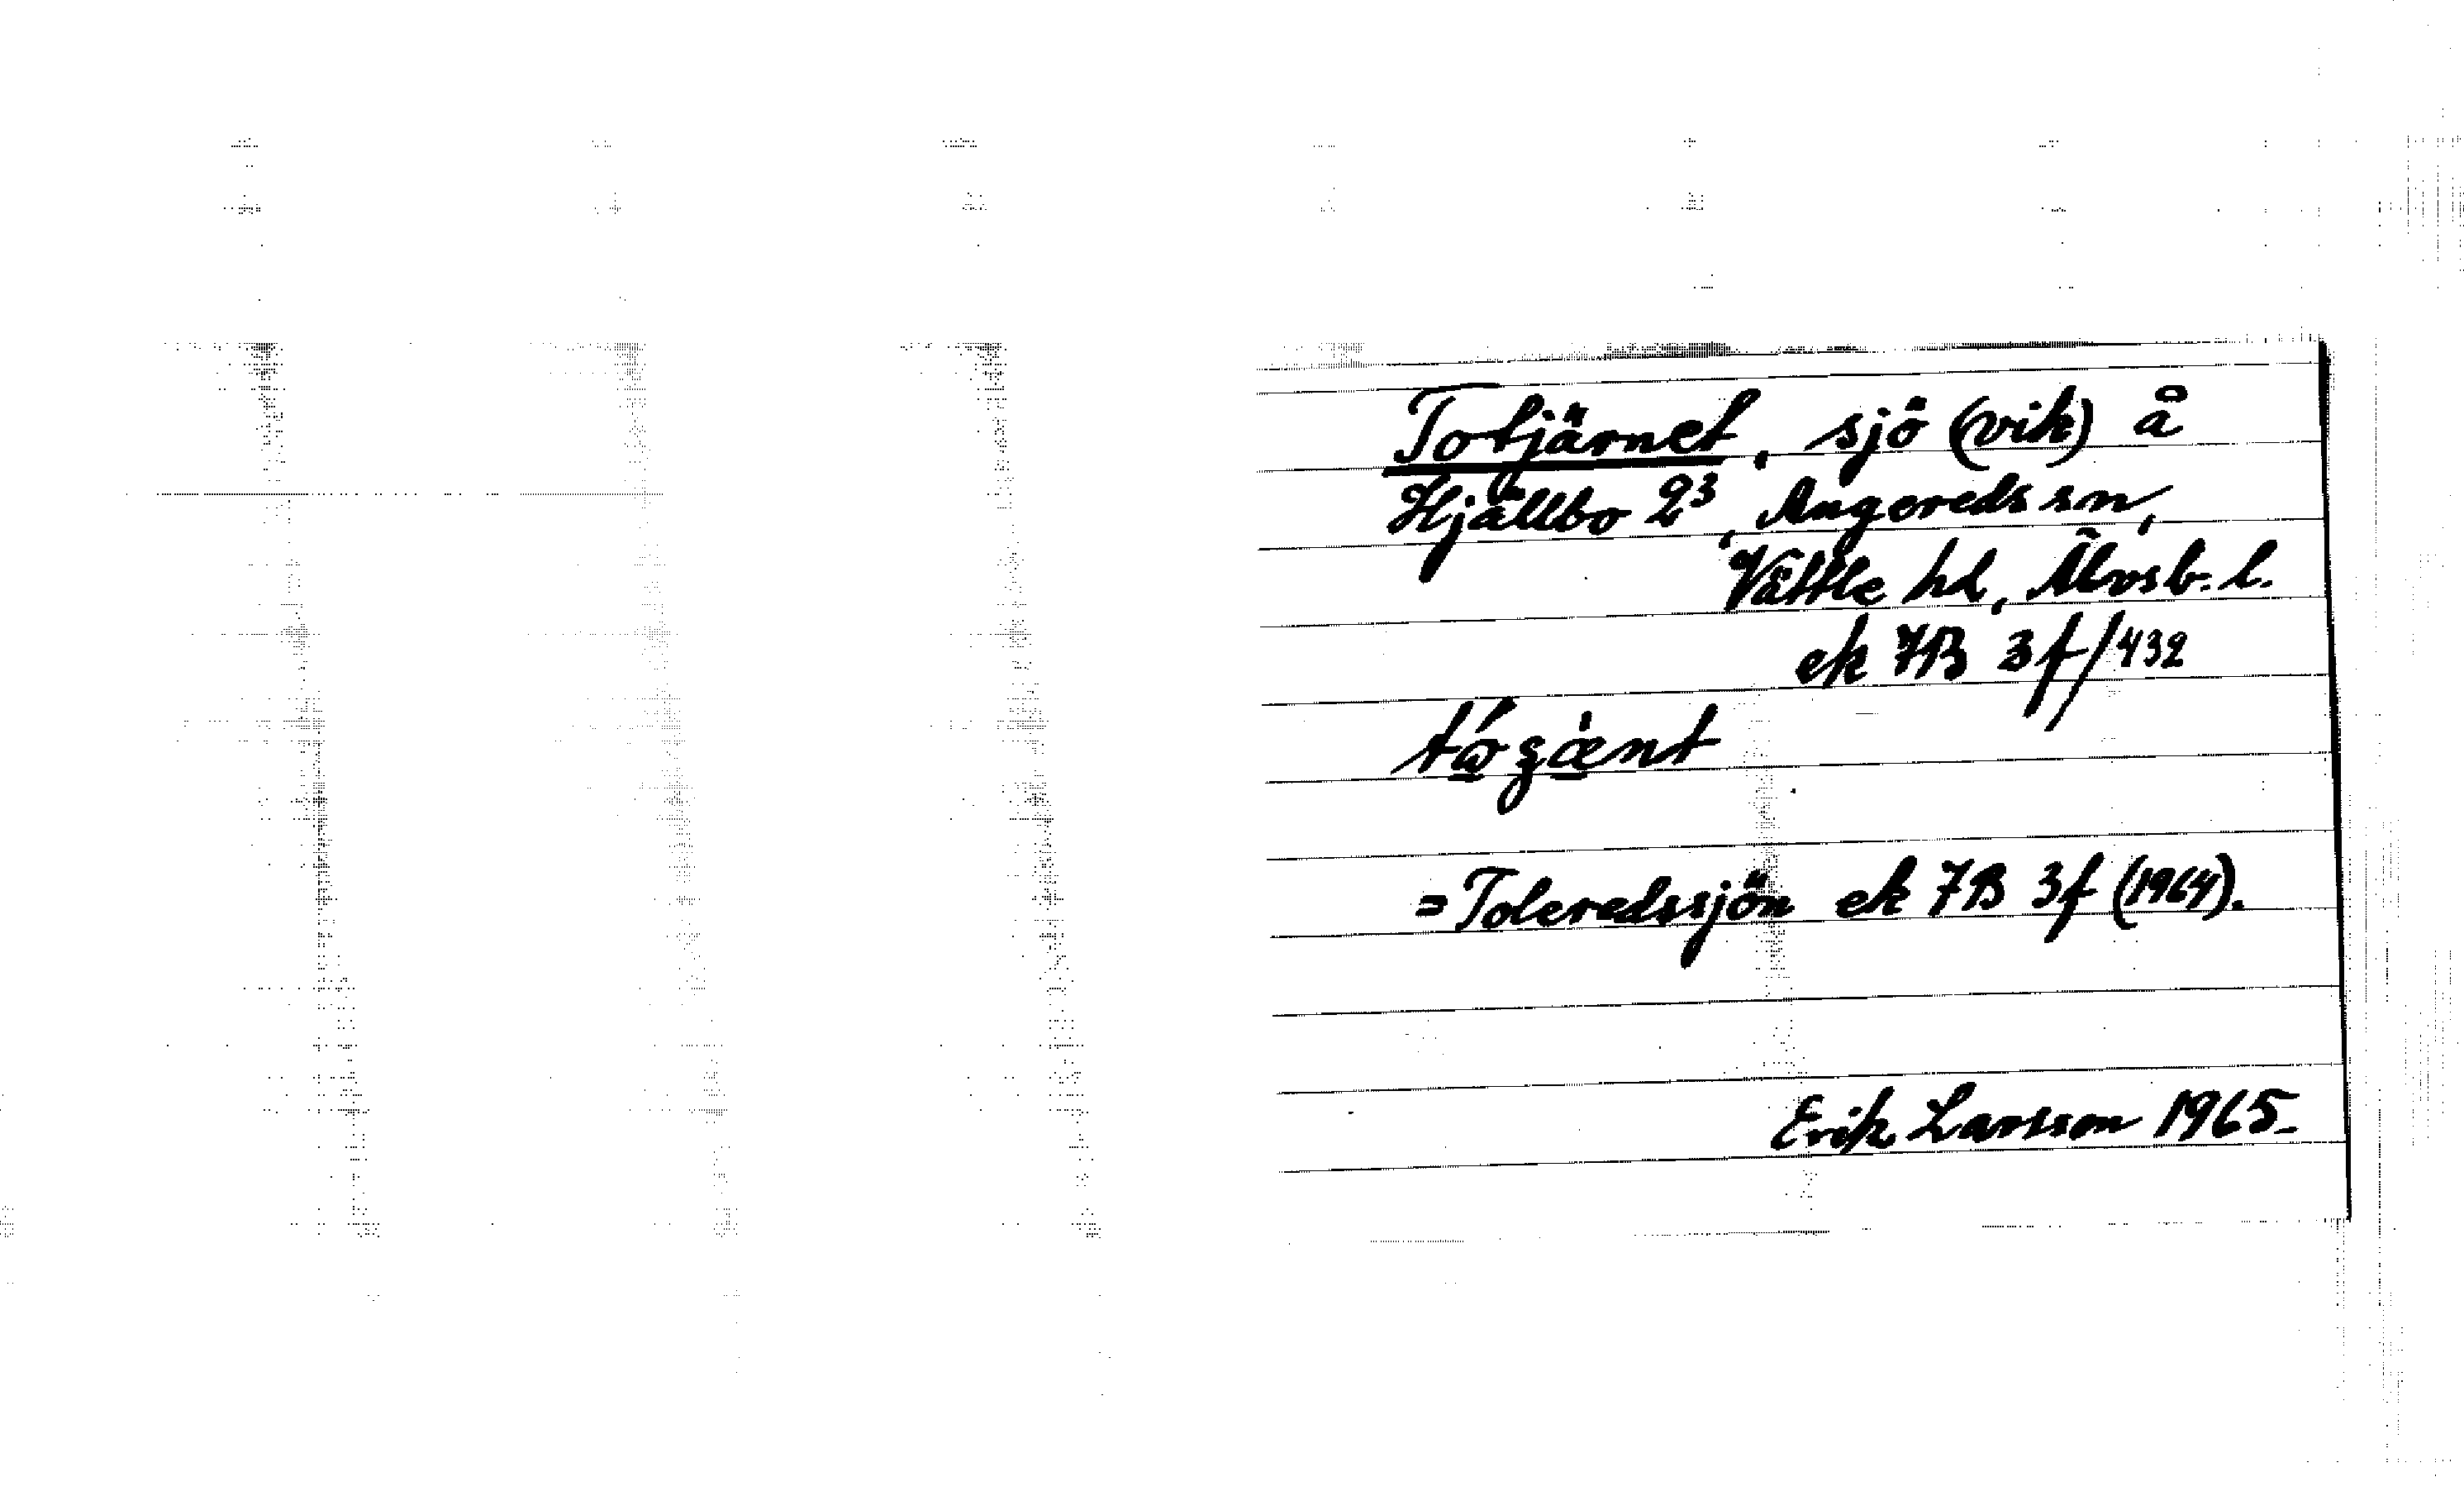 Totjärnet, sjö (vik) å
Hjällbo 2³, Angereds sn,
Vättle hd, Älvsb. l.
ek 7B 3f/432
= Toleredssjön ek 7B 3f (1964).
Erik Larsson 1965.